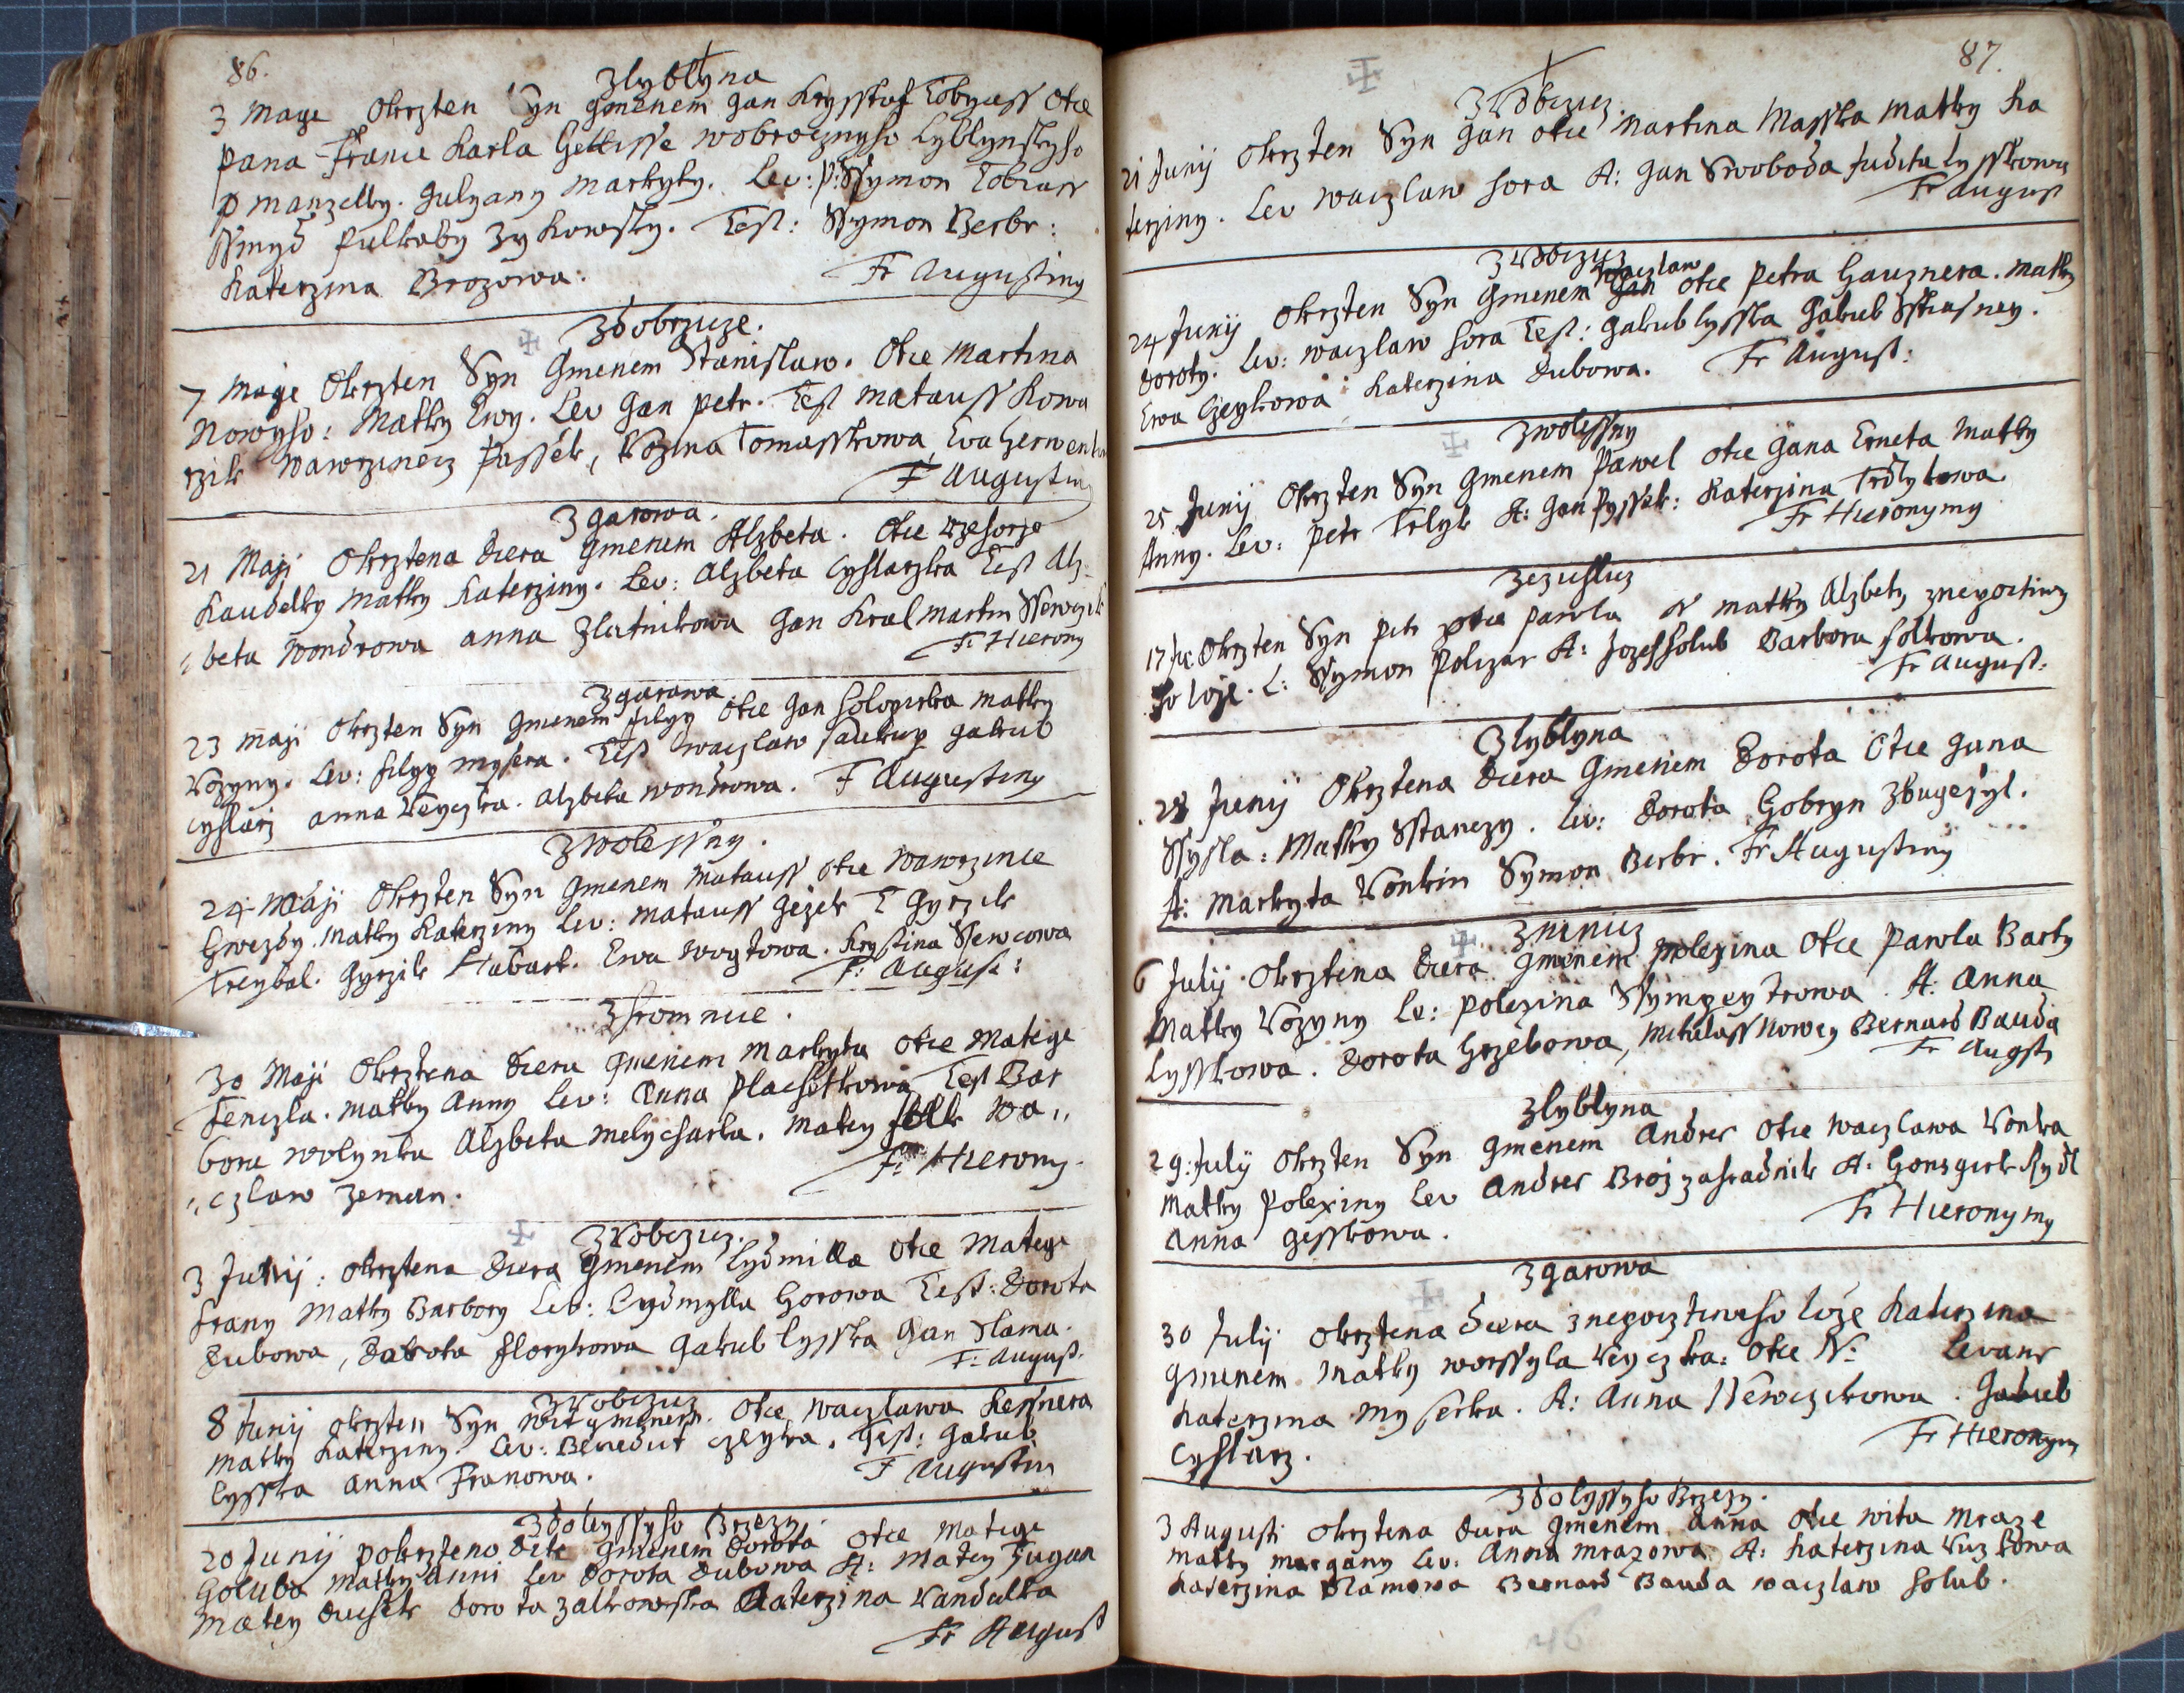 86.
Zlyblyna
3 Maye Okrzten Syn gmenem Jan Krysstof Tobyass Otce
Pana Franca Karla Gettisse wobrocznyho Lyblynskyho
p manzelky. Julyany Markyty. Lev: P: Ssymon Tobiass
Ssmyd Pulkaby Zykowsky. Test: Ssymon Berbr:
Katerzina Brozowa. Fr Augustiny
Zdobrzicze.
7 Maje Okrzten Syn Gmenem Stanislaw. Otce Martina
Nowyho: Matky Ewy. Lev Jan Petr. Test Matauss Kowa
rzik Wawrzinecz Passek, Rozina Tomasskowa, Eva Czerwenka
F Augustiny
Z Garowa.
21 Maji Okrztena Dcera Gmenem Alzbeta. Otce Rzehorze
Kaudelky Matky Katerziny. Lev: Alzbeta Cyslarzka Test Alz
beta Wondrowa Anna Zlatnikowa Jan Kral Martin Ssewczik
Fr Hierony
Zgarowa
23 Maji Okrzten Syn Gmenem Filyp Otce Jan Holoziczka Matky
Rozyny. Lev: Filyp Mysera. Test Waczlaw Saukup Jakub
Cyslarz Anna Reyczka. Alzbeta Wondrowa. F Augustiny
Zwolessny.
24 Maji Okrzten Syn Gmenem Matauss Otce Wawrzince
Gwezdy. Matky Katerziny Lev: Matauss Gezek T Gyrzik
Treybal. Gyrzik Habart. Ewa Woytowa. Krystina Ssewcowa
F: August:
Zhromnice.
30 Maji Okrztena Dcera Gmenem Markyta Otce Matege
Fenczla. Matky Anny Lev: Anna Plachetkowa Test Bar
bora Wolynka Alzbeta Melycharka. Matey Wa,,
,,czlaw Zeman. F: Hierony
ZRobczicz.
3 Junij: Okrztena Dcera Gmenem Lydmilla Otce Matege
Frany Matky Barbory Lev: Lydmylla Horowa Test: Dorota
Dubowa, Dorota Florykowa Jakub Lysska Jan Slama.
F: August.
ZRobczicz
8 Junij Okrzten Syn Wit gmenem. Otce Waczlawa Kessnera
Matky Katerziny. Lev: Benedict Czeyka. Test: Jakub
Lysska Anna Franowa. F Augustin
Zdolyssyho Brzezy.
20 Junij Pokrzteno Dite Gmenem Dorota Otce Matege
Goluba Matky Anni Lev Dorota Dubowa A: Matey Jugan
Matey Duchek Dorota Zalkowska Katerzina Vandulka
Fr August
87.
Z Robczicz.
21 Junij Okrzten Syn Jan Otce Martina Masska Matky Ka
terziny. Lev Waczlaw Hora A: Jan Swoboda Judita Lysskowa
Fr August
ZRobczicz
Waczlaw
24 Junij Okrzten Syn Gmenem Jan Otce Petra Hauznera. Matky
Doroty. Lev: Waczlaw Hora Test: Jakub Lysska Jakub Sstiasney.
Ewa Czeykowa Katerzina Dubowa. Fr August:
Zwolessny
25 Junij Okrzten Syn Gmenem Pawel Otce Jana Erneta Matky
Anny. Lev: Petr Trlyk A: Jan Pyssek: Katerzina Trdlykowa
Fr Hieronymy
Zezuslicz
17 Okrzten Syn Petr Otce Pawla N Matky Alzbety znepoctiwy
ho loze. L: Ssymon Polczar A: Jozef Holub Barbora Holkowa.
Fr August:
Zlyblyna
28 Junij Okrztena Dcera Gmenem Dorota Otce Jana
Ssysla: Matky Sstanczy. Lev: Dorota Gobryn Zbugezyl.
A: Markyta Vonkin Symon Berbr. Fr Augustiny
Zninicz
6 Julij Okrztena Dcera Gmenem Polexina Otce Pawla Barty
Matky Rozyny Le: Polexina Ssymzeytrowa. A: Anna
Lysskowa. Dorota Grzebowa, Mikulass Nowey Bernard Bauda
Fr Augst
Zlyblyna
29: Julij Okrzten Syn Gmenem Andres Otce Waczlawa Vonka
Matky Polexiny Lev Andres Broz Zahradnik A: Honsgirk Rydl
Anna Gesskowa. Fr Hieronymy
Zgarowa
30 Julij Okrztena Dcera znepoctiweho loze Katerzina
Gmenem Matky Worssyla Reyczka: Otce N: Levans
Katerzina Myserka. A: Anna Ssewczikowa. Jakub
Cyslarz. Fr Hieronym
Zdolyssyho Brzezy.
3 Augusti Okrztena Dcera Gmenem Anna Otce Wita Mraze
Matky Margany Lev: Anna Mrazowa A: Katerzina Kuzkowa
Katerzina Slamowa Bernard Bauda Waczlaw Holub.
46